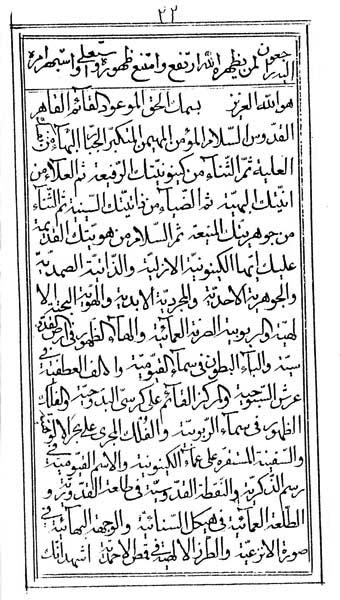 ٢٢
لمن يظهره الله ارتفع وامتنع ظهوره
هو الله العزيز بسمك الحق الموعود القائم القاهر
القدوس السلام المؤمن المهيمن المتكبر الجبار البهاء
العلية ثم الثناء من كينونيتك الرفيعة ثم العلاء من
انيتك البهية ثم الضياء من ذاتيتك السنية ثم الثناء
من جوهريتك المنيعة ثم السلام من هويتك القديمة
عليك ايتها الكينونية الازلية والذاتية الصمدية
والجوهرية الاحدية والمجردية الابدية والهوية البحتة الا
لهية والربوبية الصرفة العمائية والهاء الظهور في ارض القد
سية والباء البطون في سماء القيومية والالف العطفية في
عرش السبوحية والمركز القائم على كرسي البدوحية والفلك
الظهور في سماء الربوبية والفلك المجرى على بحر الالوهية
والسفينة المستقره على عماء الكينونية والاسم القيومية في
رسم الذكرية والنقطة القدوسية في طلعة القدوسية و
الطلعة العمائية في هيكل السنائية والوجهة البهائية في
صورة الانزعية والطراز الالهية في قمص الاحمدية اشهد انك